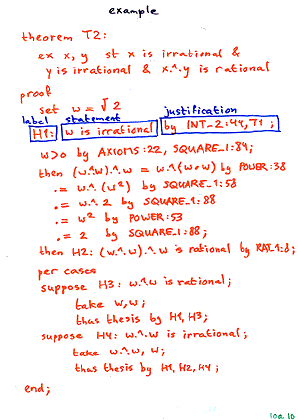 example
theorem T2:
ex x, y st x is irrational &
y is irrational & x.^.y is rational
proof
set w = √2
label statement justification
H1: w is irrational by INT_2:44, T1;
w>0 by AXIOMS:22, SQUARE_1:84;
then (w.^.w).^.w = w.^.(w•w) by POWER:38
.= w.^.(w²) by SQUARE_1:58
.= w.^.2 by SQUARE_1:88
.= w² by POWER:53
.= 2 by SQUARE_1:88;
then H2: (w.^.w).^.w is rational by RAT_1:8;
per cases
suppose H3: w.^.w is rational;
take w, w;
thus thesis by H1, H3;
suppose H4: w.^.w is irrational;
take w.^.w, w;
thus thesis by H1, H2, H4;
end;